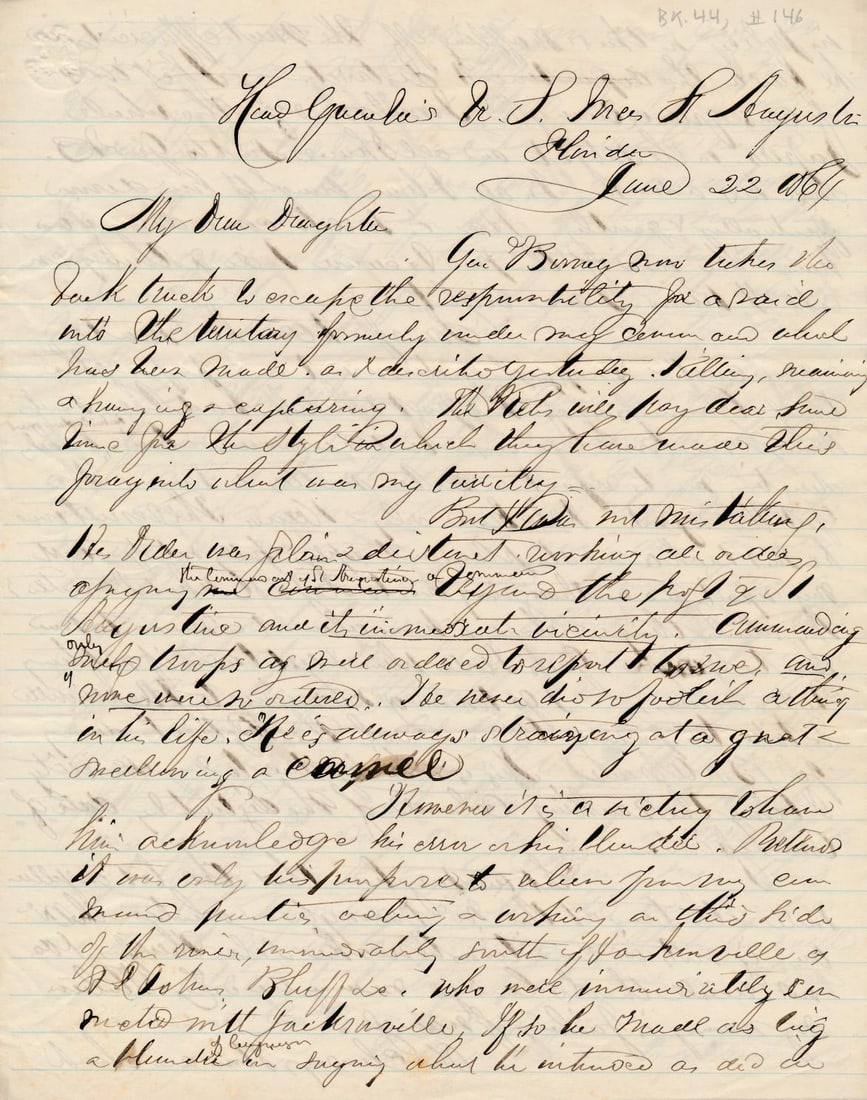 BK. 44, # 146
Head Quarters U. S. Forces St Augustine
Florida
June 22 1864
My Dear Daughter
Gen Birney now takes the
back track to escape the responsibility for a raid
into the territory formerly under my command which
has been made. as I described yesterday. Killing, maiming
& hanging & capturing. The Rebs will pay dear some
time for the style in which they have made this
foray into what was my territory
But I was not mistaken,
His Order was plain & distinct. revoking all orders
the command of St Augustine
beyond the post of St
Augustine and its immediate vicinity. Commanding
only
such troops as were ordered to report to me, and
none were so ordered. He never did so foolish a thing
in his life. He is allways straining at a gnat &
swallowing a camel
However it is a victory to have
him acknowledge his error or his blunder. Pretends
it was only his purpose to relieve from my com
mand parties acting & working on this side
of the river, immediately south of Jacksonville as
St Johns Bluff &c. who were immediately con
nected with Jacksonville, If so he made as big
of Congress
a blunder in saying what he intended as did